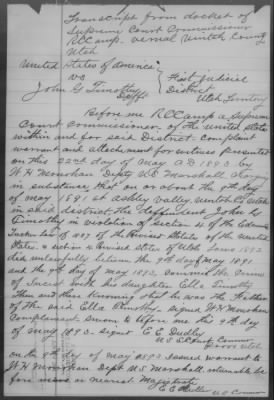 Transcript from docket of
Supreme Court Commissioner
R C Camp. Vernal Uintah County
Utah
United States of America
vs
First Judicial
John G Timothy
Deft
District
Utah Territory
Before me R C Camp a Supreme
Court Commissioner of the United States
within and for said District. Complaint
warrant and attachment for witness presented
on this 22nd day of May A D 1893 by
W H Deputy U S Marshall charging
in substance that on or about the 9th day
of May 1891 at Ashley valley Uintah Co Utah
in said district the defendant John G
Timothy in violation of section of the Edmunds
Tucker law of 1887 of the Revised Statutes of the United
States & section Revised Statutes of Utah laws 1892
did unlawfully between the 9th day of May 1891
and the 9th day of May 1893, commit the crime
of Incest with his daughter Ella Timothy
Then and there knowing that he was the Father
of the said Ella Timothy. signed W H
Complainant sworn to before me this 9th day
of May 1893. signed E E Dudley
U S C Court Commr
Utah
on the 9th day of May 1893 issued warrant to
W H Dept U S Marshall returnable be
fore me or nearest Magistrate
E E
U S Commr